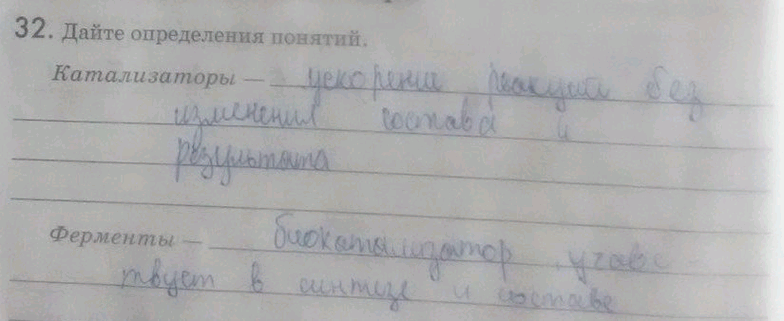 32. Дайте определения понятий.
Катализаторы — ускорение реакции без
изменения состава и
результата
Ферменты — биокатализатор участ
твует в синтезе и составе